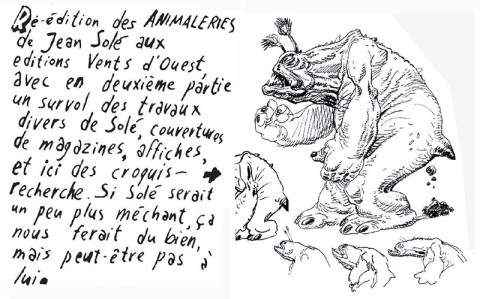 Ré-édition des ANIMALERIES
de Jean Solé aux
editions Vents d'Ouest
avec en deuxième partie
un survol des travaux
divers de Solé, couvertures
de magazines, affiches,
et ici des croquis-
recherche. Si Solé serait
un peu plus méchant, ça
nous ferait du bien,
mais peut-être pas à
lui.